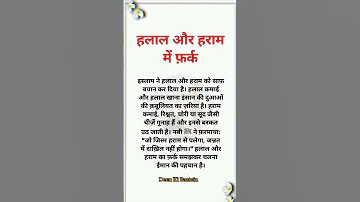 हलाल और हराम
में फ़र्क
इस्लाम ने हलाल और हराम को साफ़
बयान कर दिया है। हलाल कमाई
और हलाल खाना इंसान की दुआओं
की क़बूलियत का ज़रिया है। हराम
कमाई, रिश्वत, चोरी या सूद जैसी
चीज़ें गुनाह हैं और इनसे बरकत
उठ जाती है। नबी ﷺ ने फ़रमाया:
"जो जिस्म हराम से पलेगा, जन्नत
में दाख़िल नहीं होगा।" हलाल और
हराम का फ़र्क समझकर चलना
ईमान की पहचान है।
Deen Ki Baatein